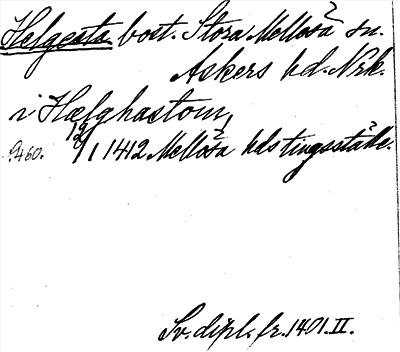 Helgesta bost. Stora Mellösa sn.
Askers hd. Nrk.
i Hælghastom,
S. 460. 12/1 1412 Mellösa hdstingsställe.
Sv. dipl. fr. 1401. II.